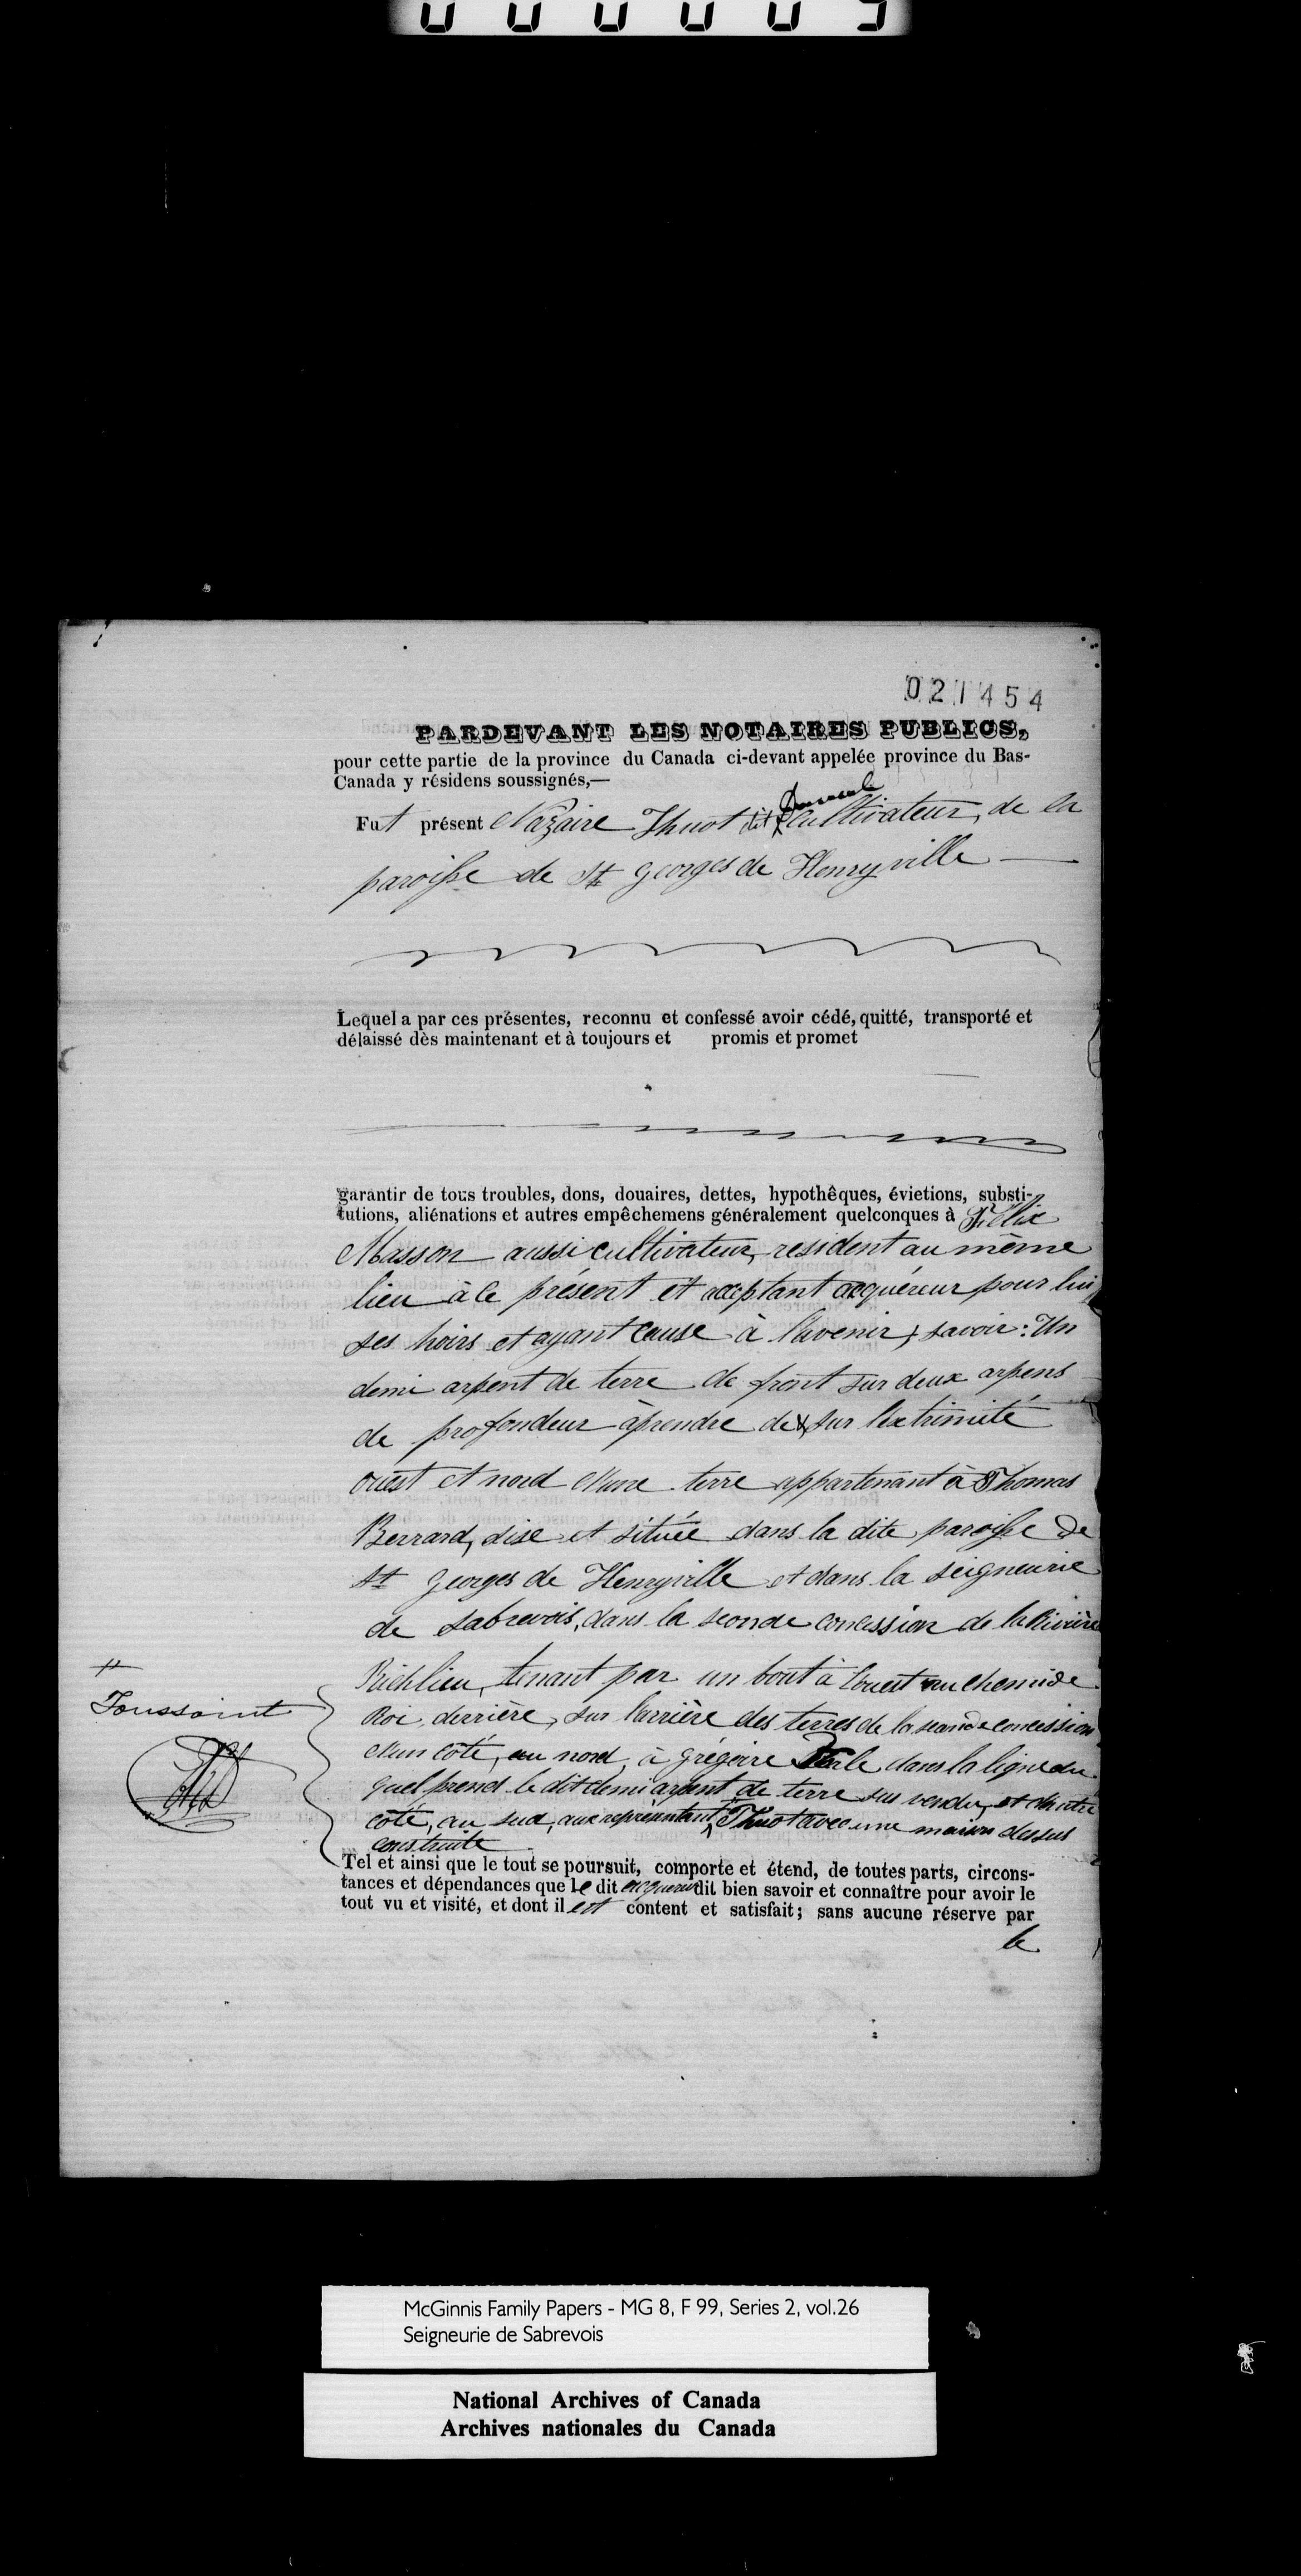 021454
PARDEVANT LES NOTAIRES PUBLICS,
pour cette partie de la province du Canada ci-devant appelée province du Bas-
Canada y résidens soussignés,—
Fut présent Nazaire Thuot dit Duval cultivateur, de la
paroisse de St Georges de Henryville
Lequel a par ces présentes, reconnu et confessé avoir cédé, quitté, transporté et
délaissé dès maintenant et à toujours et promis et promet
garantir de tous troubles, dons, douaires, dettes, hypothêques, évietions, substi-
tutions, aliénations et autres empêchemens généralement quelconques à Félix
Masson aussi cultivateur, resident au même
lieu à ce présent et acceptant acquéreur pour lui,
ses hoirs et ayant cause à l'avenir, savoir: Un
demi arpent de terre de front sur deux arpens
de profondeur à prendre de sur l'extrimité
ouest et nord d'une terre appartenant à Thomas
Berrard, sise et située dans la dite paroisse de
St Georges de Henryville et dans la seigneurie
de Sabrevois, dans la seconde concession de la Rivière
Richlieu, tenant par un bout à l'ouest au chemin de
Roi, derrière, sur l'arrière des terres de la seconde concession
d'un côté, au nord, à Grégoire dans la ligne du
quel prend le dit demi arpent de terre sus vendu, et d'autre
côté, au sud, aux représentant Thuot avec une maison dessus
construite
Toussaint
Tel et ainsi que le tout se poursuit, comporte et étend, de toutes parts, circons-
tances et dépendances que le dit acquereur dit bien savoir et connaître pour avoir le
tout vu et visité, et dont il est content et satisfait; sans aucune réserve par
le
McGinnis Family Papers - MG 8, F 99, Series 2, vol.26
Seigneurie de Sabrevois
National Archives of Canada
Archives nationales du Canada